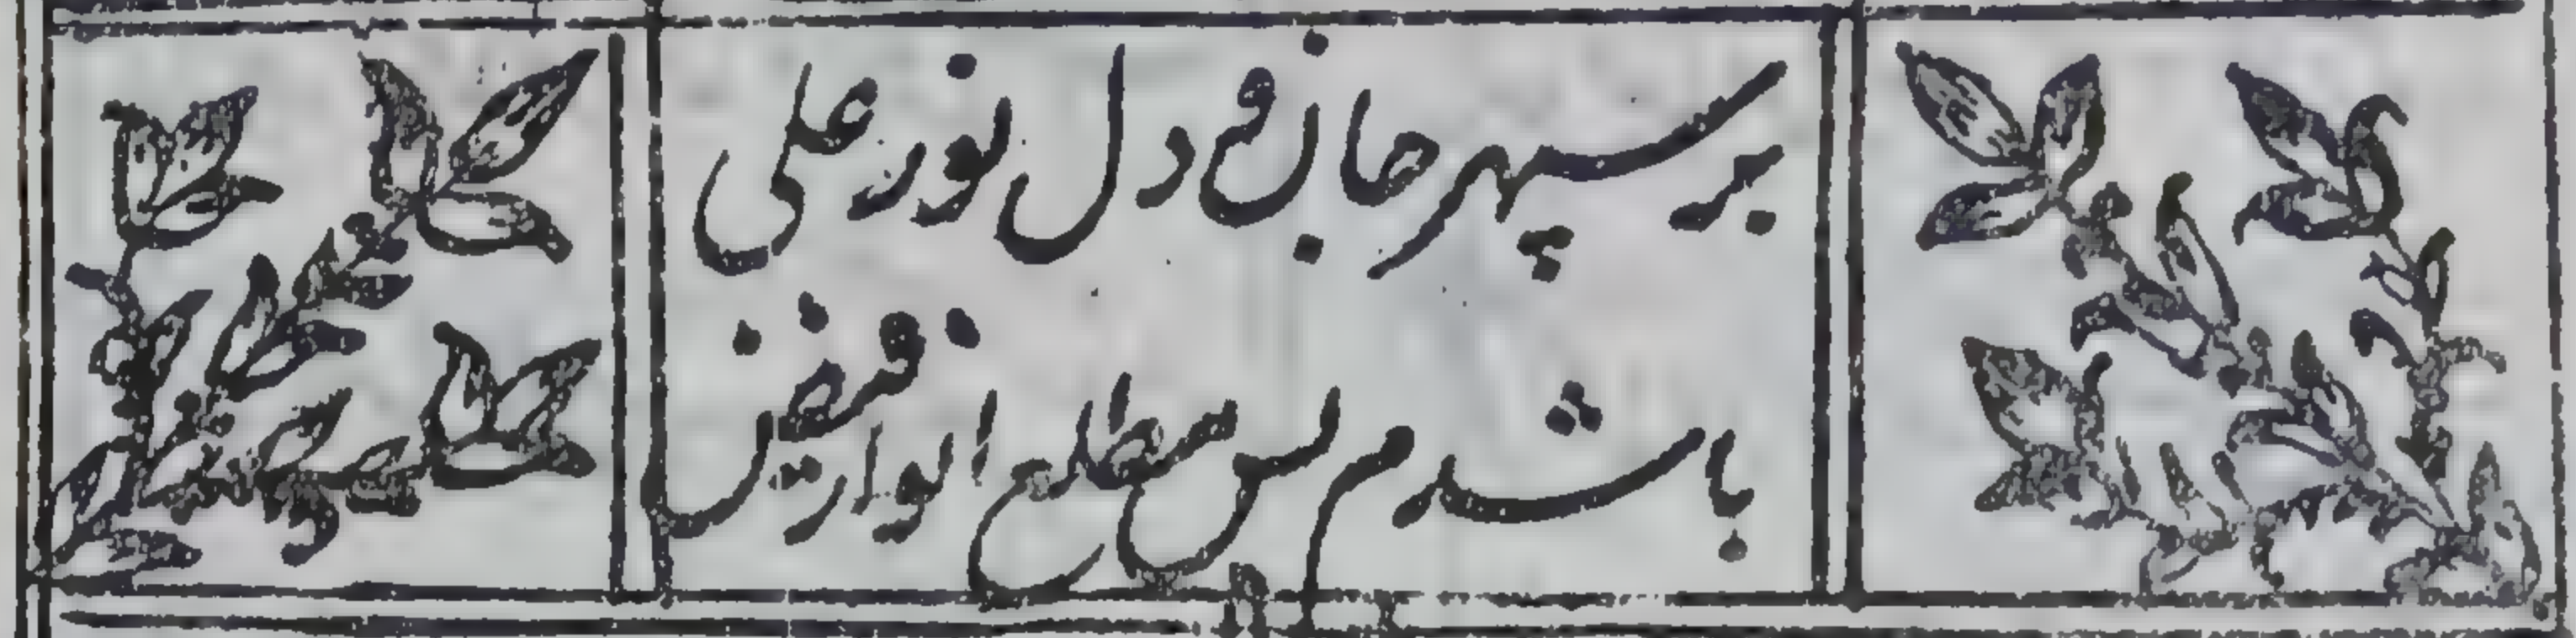 بر سپهر جان و دل نور علی
باشدم بس مطلع انوار فیض